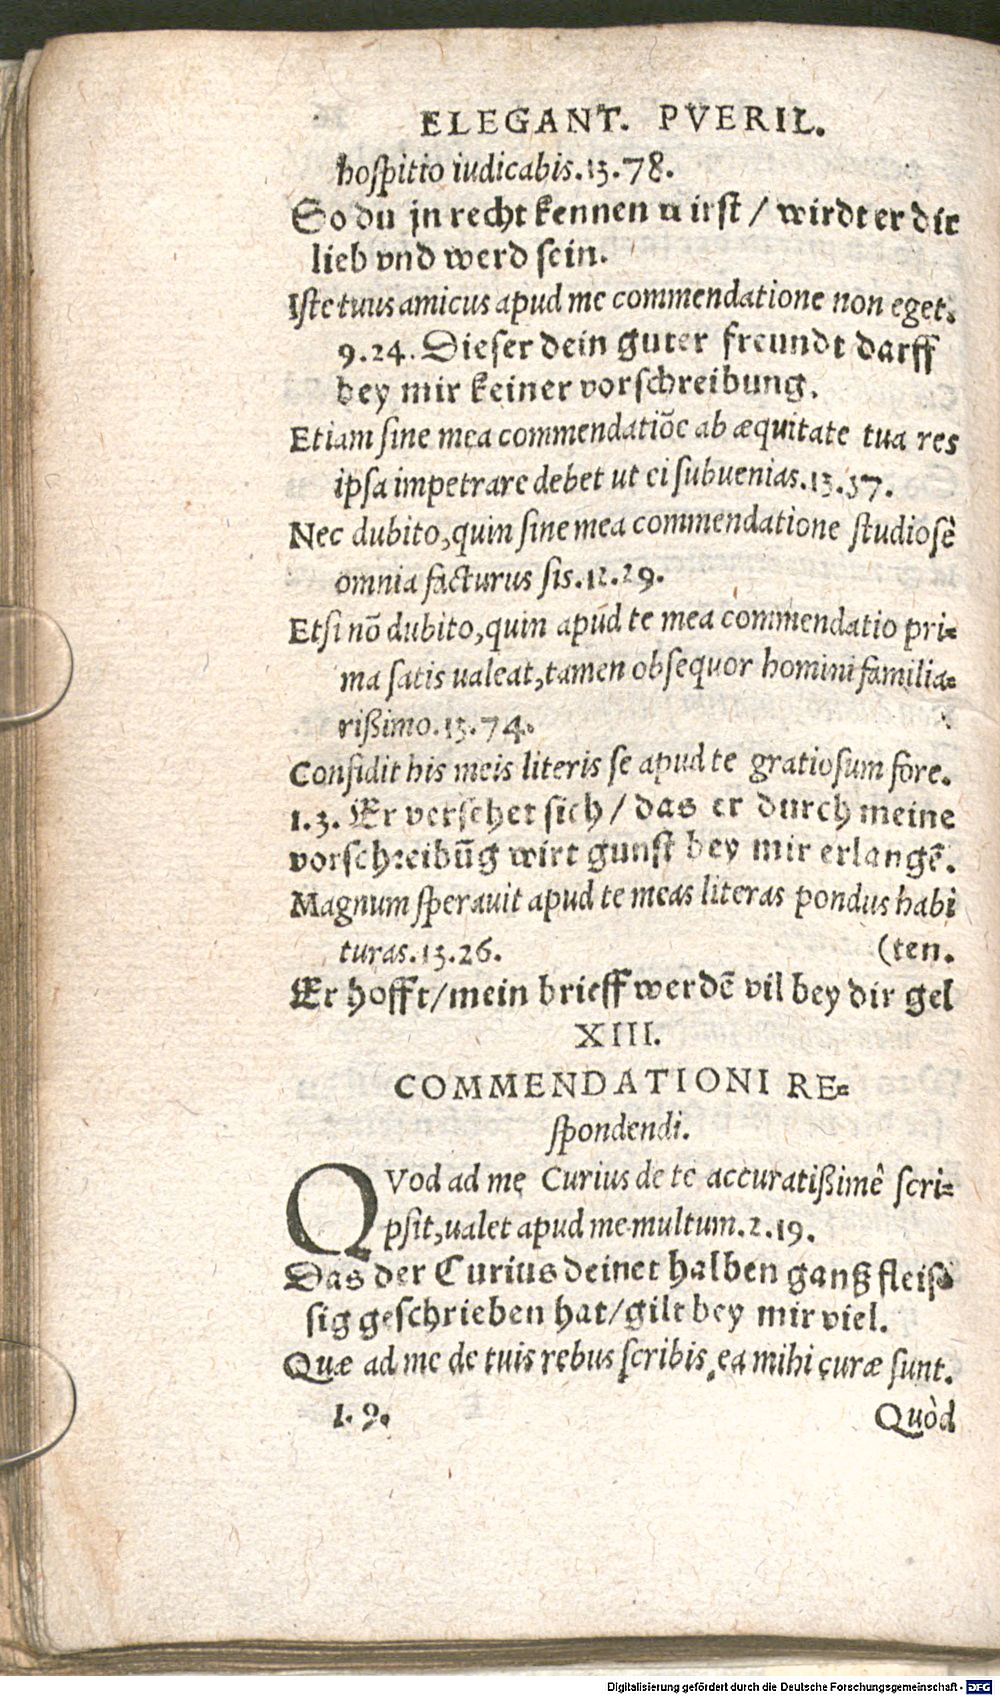 ELEGANT. PVERIL.
hoſpitio iudicabis.13.78.
So du jn recht kennen wirſt / wirdt er dir
lieb vnd werd ſein.
Iſte tuus amicus apud me commendatione non eget.
9.24. Dieſer dein guter freundt darff
bey mir keiner vorſchreibung.
Etiam ſine mea commendatiõe ab æquitate tua res
ipſa impetrare debet ut ei ſubuenias.13.37.
Nec dubito, quin ſine mea commendatione ſtudioſè
omnia facturus ſis.12.29.
Etſi nõ dubito, quin apud te mea commendatio pri⸗
ma ſatis ualeat, tamen obſequor homini familia⸗
rißimo.13.74.
Confidit his meis literis ſe apud te gratioſum fore.
1.3. Er verſehet ſich / das er durch meine
vorſchreibũg wirt gunſt bey mir erlangẽ.
Magnum ſperauit apud te meas literas pondus habi
turas.13.26. (ten.
Er hofft/mein brieff werdẽ vil bey dir gel
XIII.
COMMENDATIONI RE⸗
ſpondendi.
QVod ad me Curius de te accuratißimê ſcri⸗
pſit, ualet apud me multum.2.19.
Das der Curius deinet halben gantz fleiſ⸗
ſig geſchrieben hat/gilt bey mir viel.
Quæ ad me de tuis rebus ſcribis, ea mihi curæ ſunt.
1.9. Quòd
Digitalisierung gefördert durch die Deutsche Forschungsgemeinschaft - DFG